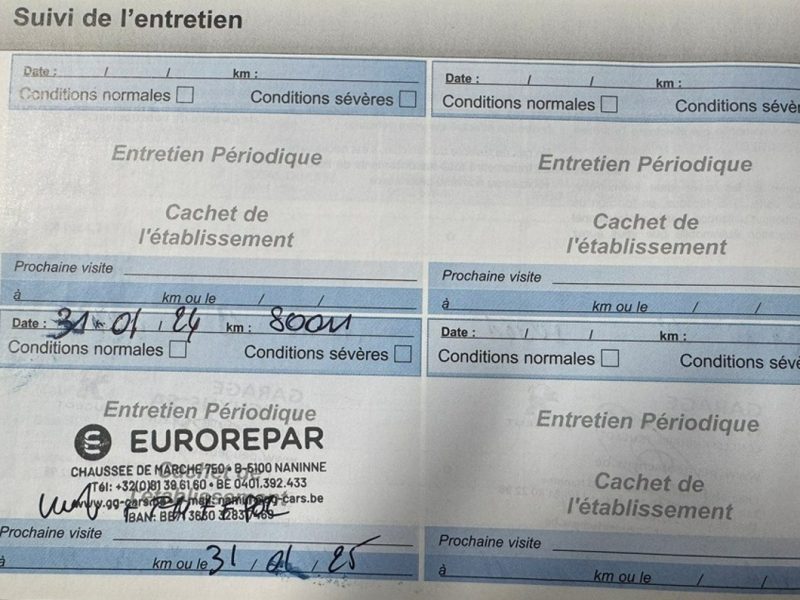 Suivi de l'entretien
Date : / / km :
Conditions normales Conditions sévères
Entretien Périodique
Cachet de
l'établissement
Prochaine visite
à km ou le / /
Date : / / km :
Conditions normales Conditions
Entretien Périodique
Cachet de
l'établissement
Prochaine visite
à km ou le / /
Date : 31 / 01 / 24 km :
Conditions normales Conditions sévères
Entretien Périodique
EUROREPAR
CHAUSSEE DE MARCHE 750 • B-5100 NANINNE
Tél: +32(0)81 39.61.60 • BE 0401.392.433
www.gg-cars.be namur@gg-cars.be
IBAN:
Prochaine visite
à km ou le 31 / 01 / 25
Date : / / km :
Conditions normales Conditions
Entretien Périodique
Cachet de
l'établissement
Prochaine visite
à km ou le / /